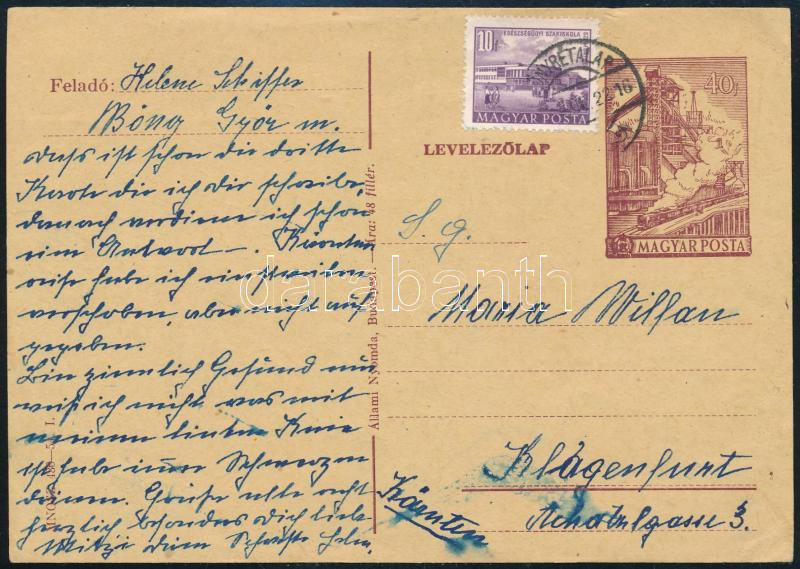 Feladó: Helene Schiffer
Bőny Győr m.
Dass ist schon die dritte
Karte die ich dir schreibe,
danach verdiene ich schon
ein Antwort. Kärnten
reise habe ich einstweilen
verschoben, aber nicht auf
gegeben.
Bin ziemlich Gesund nur
weiß ich nicht was mit
meinem linken Knie
ist habe immer Schmerzen
drinnen. Grüße alle recht
herzlich besonders Dich liebe
Mitzi Deine Helen.
Állami Nyomda, Budapest. — Ára: 48 fillér.
10f
EGÉSZSÉGÜGYI SZAKISKOLA
MAGYAR POSTA
22 16
40f
MAGYAR POSTA
LEVELEZŐLAP
S. g.
Maria Willan
Klagenfurt
3.
Kärnten
databanth